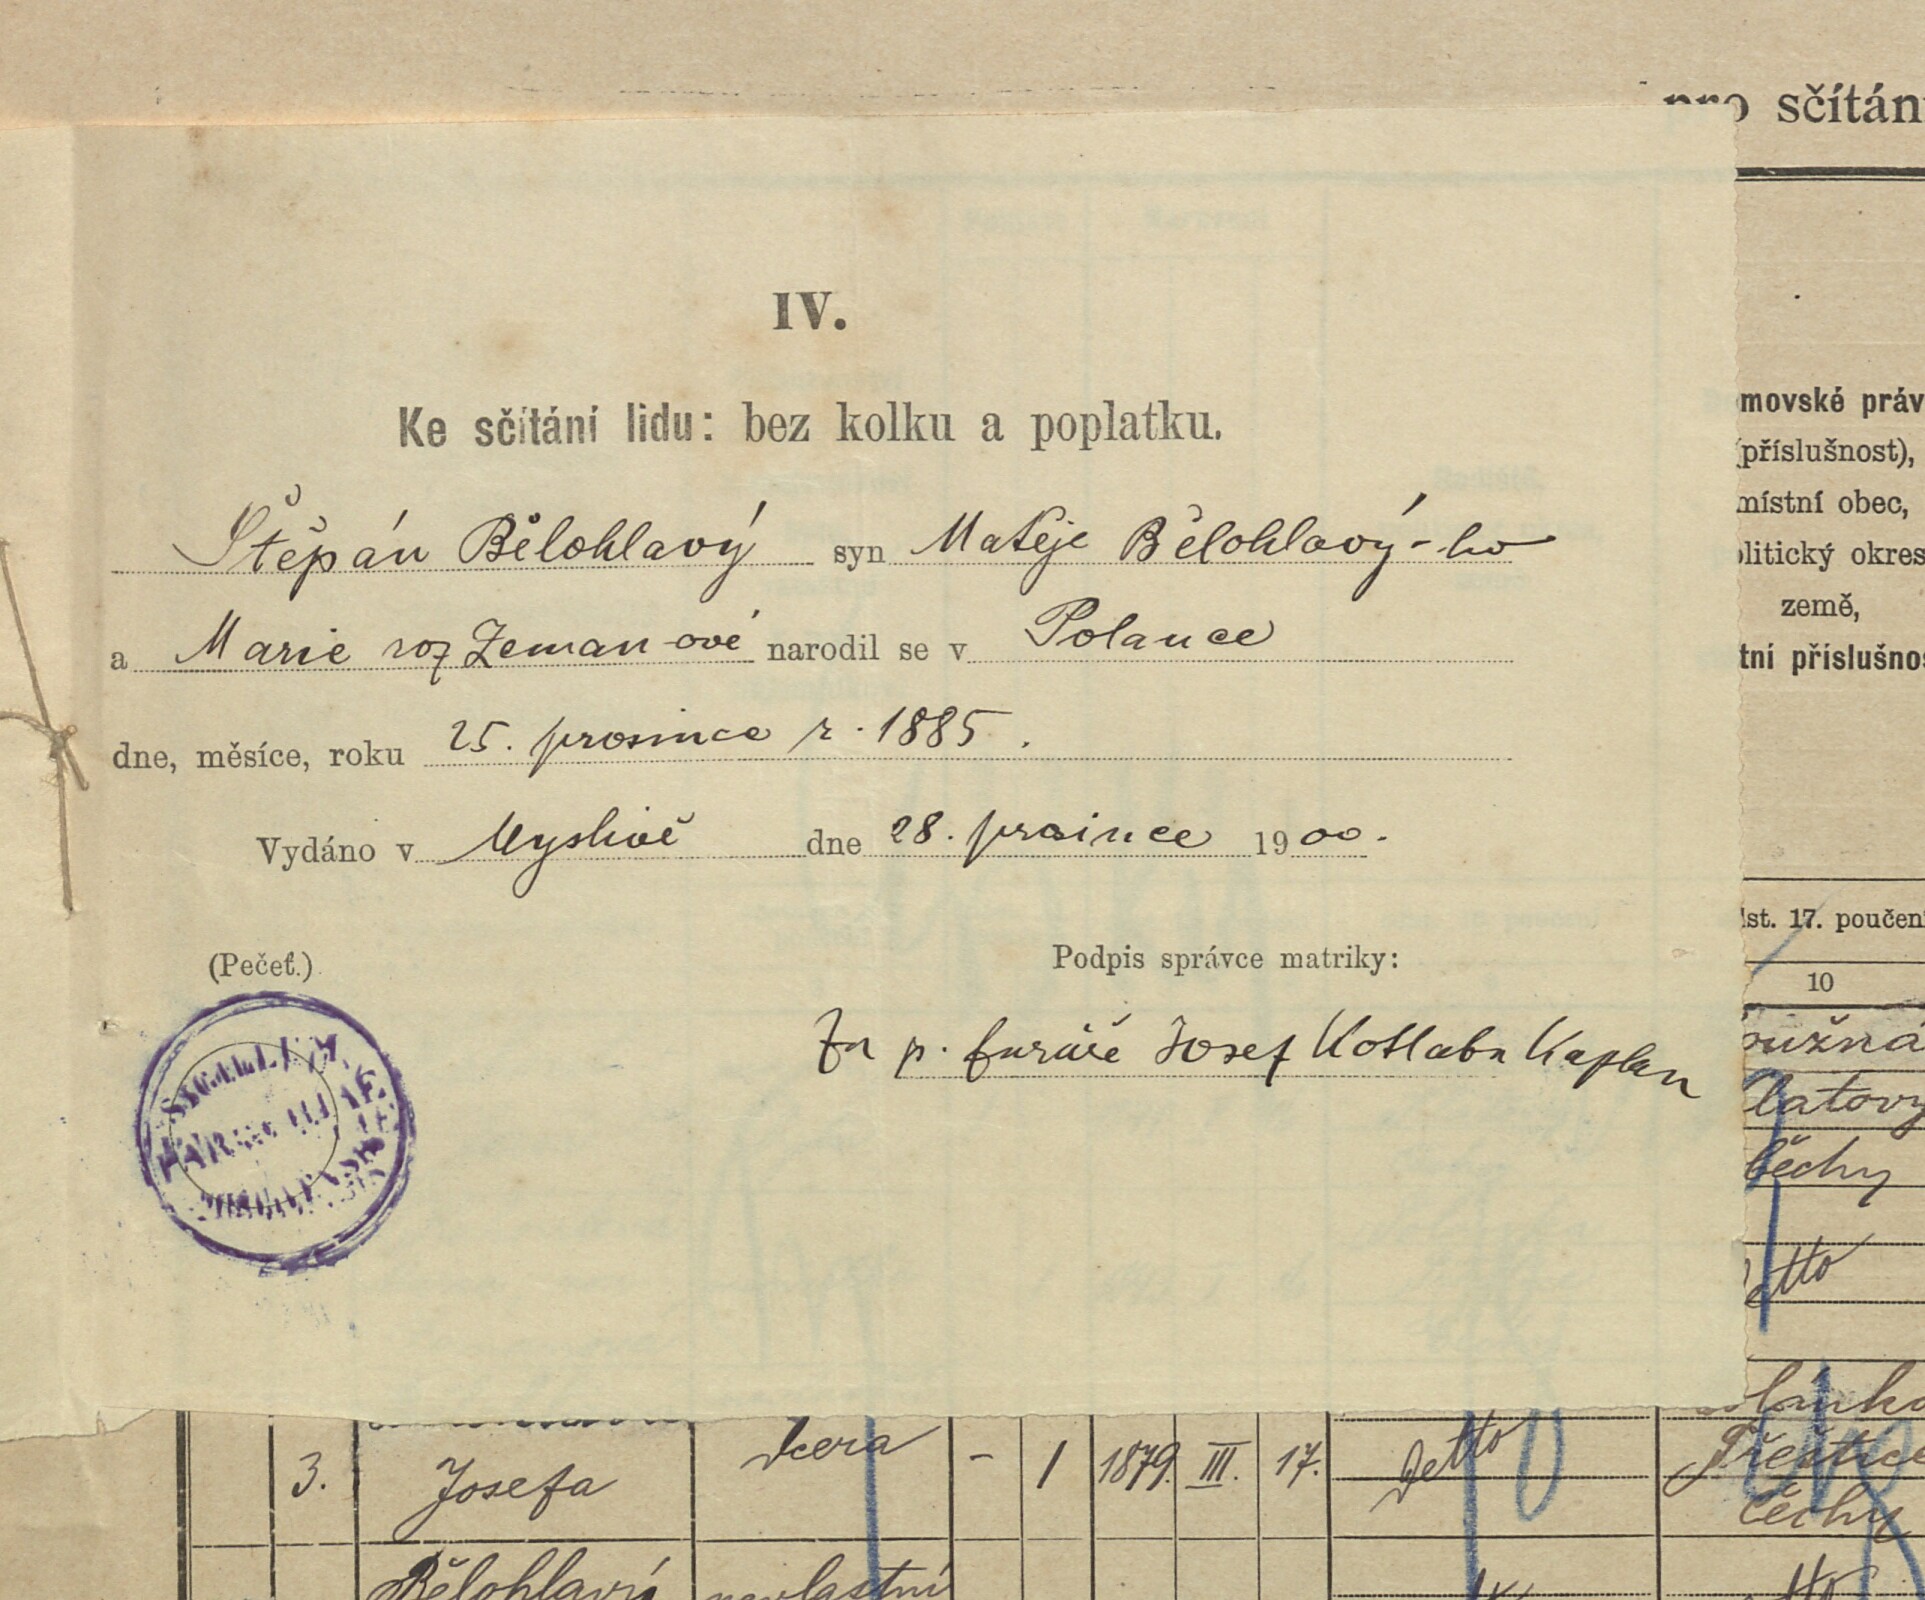 pro sčítán
IV.
Ke sčítání lidu: bez kolku a poplatku.
Štěpán Bělohlavý syn Matěje Bělohlavý-ho
a Marie roz Zeman-ové narodil se v Polance
dne, měsíce, roku 25. prosince r. 1885.
Vydáno v Myslivě dne 28. prosince 1900.
(Pečeť.)
Podpis správce matriky:
Za p. faráře Josef Kotlaba Kaplan
SIGILLUM
movské práv
(příslušnost),
místní obec,
olitický okres
země,
tní příslušnos
st. 17. poučen
10
užná
latovy
čechy
etto
3. Josefa dcera - 1 1879. III. 17. detto
Přeštice
čechy
Bělohlaví nevlastní